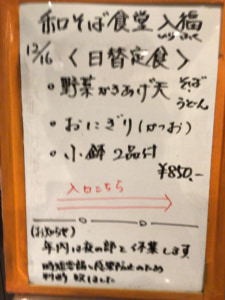 和そば食堂 入福
12/16 〈日替定食〉
・野菜かきあげ天 そば うどん
・おにぎり(かつお)
・小鉢2品付
¥850.-
入口こちら
(お知らせ)
年内は夜の部を休業します
のため
致しました